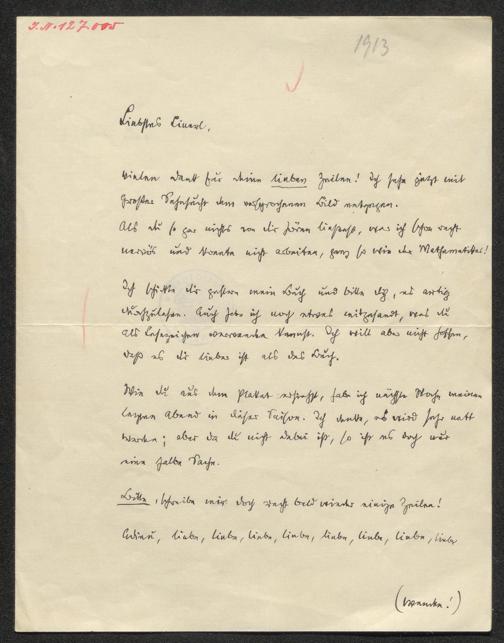 J.N. 127.005
1913
Liebstes Linerl,
vielen Dank für deine lieben Zeilen! Ich sehe jetzt mit
größter Sehnsucht dem versprochenen Bild entgegen.
Als du so gar nichts von dir hören ließest, war ich schon recht
nervös und konnte nicht arbeiten, ganz so wie der Mathematiker!
Ich schickte dir gestern mein Buch und bitte dich, es artig
durchzulesen. Auch habe ich noch etwas mitgesandt, was du
als Lesezeichen verwenden kannst. Ich will aber nicht hoffen,
daß es dir lieber ist als das Buch.
Wie du aus dem Plakat ersiehst, habe ich nächste Woche meinen
letzten Abend in dieser Saison. Ich denke, es wird sehr nett
werden; aber da du nicht dabei bist, so ist es doch nur
eine halbe Sache.
Bitte, schreibe mir doch recht bald wieder einige Zeilen!
Adieu, liebe, liebe, liebe, liebe, liebe, liebe, liebe, liebe
(wende!)